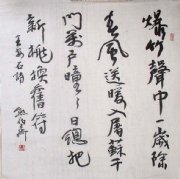 爆竹聲中一歲除
春風送暖入屠蘇千
門萬戶曈々日總把
新桃換舊符
王安石詩